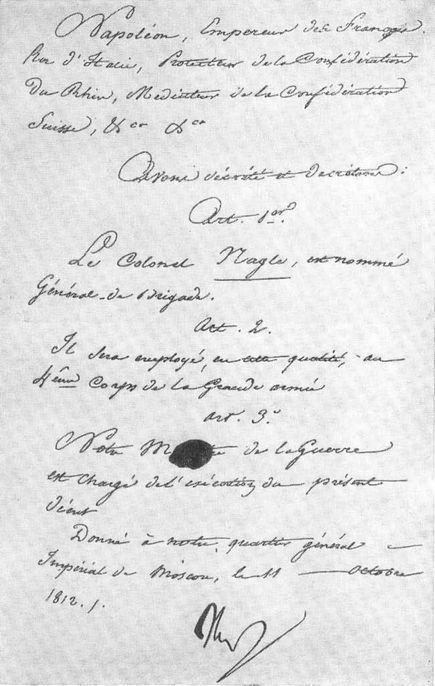 Napoléon, Empereur des Français.
Roi d'Italie, Protecteur de la Confédération
Du Rhin, Mediateur de la Confédération
Suisse, &ca &ca
Avons décrété et decrétons :
Art. 1er.
Le Colonel Nagle, est nommé
Général de Brigade.
Art. 2.
Il sera employé, en cette qualité, au
4ème Corps de la Grande armée
art. 3.
Notre M de la Guerre
est chargé de l'exécution du présent
décret
Donné à notre quartier général
Impérial de Moscou, le 11 octobre
1812.